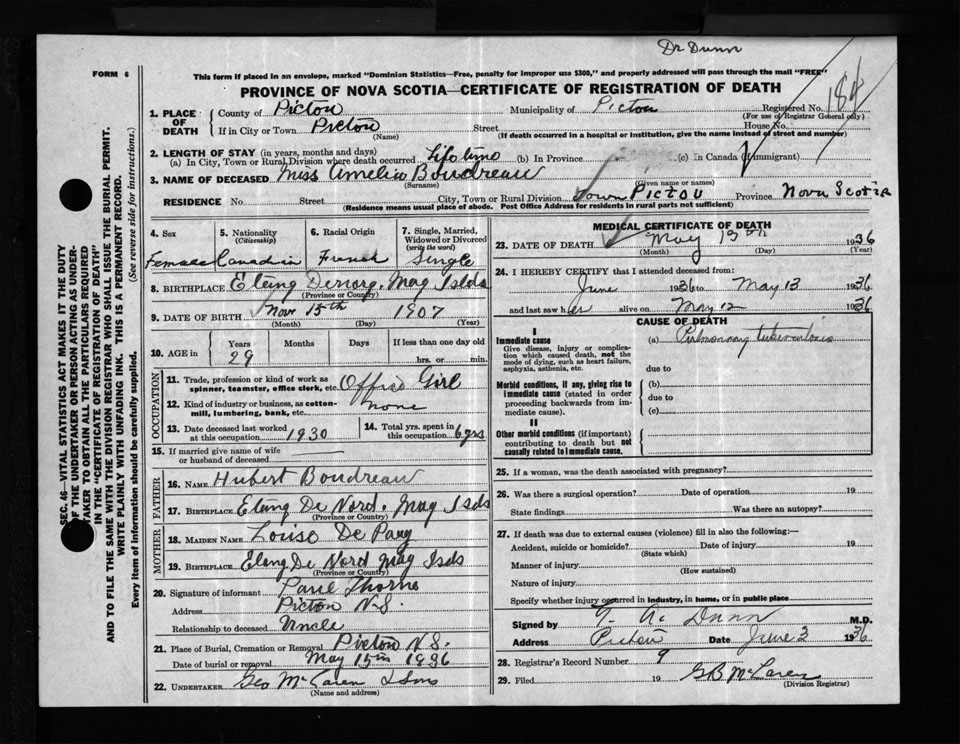 Dr Dunn
FORM 6
This form if placed in an envelope, marked "Dominion Statistics—Free, penalty for improper use $300," and properly addressed will pass through the mail "FREE"
PROVINCE OF NOVA SCOTIA—CERTIFICATE OF REGISTRATION OF DEATH
184
1. PLACE OF DEATH
County of Pictou Municipality of Pictou Registered No.
(For use of Registrar General only)
If in City or Town Pictou Street House No.
(Name) (If death occurred in a hospital or institution, give the name instead of street and number)
2. LENGTH OF STAY (in years, months and days)
(a) In City, Town or Rural Division where death occurred Lifetime (b) In Province (c) In Canada (if immigrant)
3. NAME OF DECEASED Miss Amelia Boudreau
(Surname) (Given name or names)
RESIDENCE No. Street City, Town or Rural Division Town Pictou Province Nova Scotia
(Residence means usual place of abode. Post Office Address for residents in rural parts not sufficient)
4. Sex Female
5. Nationality (Citizenship) Canadian
6. Racial Origin French
7. Single, Married, Widowed or Divorced (write the word) Single
8. BIRTHPLACE Etang Denorg, Mag Islds
(Province or Country)
9. DATE OF BIRTH Nov 15th 1907
(Month) (Day) (Year)
10. AGE in Years Months Days If less than one day old
29 hrs. or min.
OCCUPATION
11. Trade, profession or kind of work as spinner, teamster, office clerk, etc. Office Girl
12. Kind of industry or business, as cotton-mill, lumbering, bank, etc. none
13. Date deceased last worked at this occupation 1930
14. Total yrs. spent in this occupation 6 yrs
15. If married give name of wife or husband of deceased
FATHER
16. NAME Hubert Boudreau
17. BIRTHPLACE Etang De Nord. Mag Islds
(Province or Country)
MOTHER
18. MAIDEN NAME Louise De Pary
19. BIRTHPLACE Etang De Nord Mag Islds
(Province or Country)
20. Signature of informant Paul Thorne
Address Pictou N.S.
Relationship to deceased Uncle
21. Place of Burial, Cremation or Removal Pictou N.S.
Date of burial or removal May 15th 1936
22. UNDERTAKER Geo McLaren & Sons
(Name and address)
MEDICAL CERTIFICATE OF DEATH
23. DATE OF DEATH May 13th 1936
(Month) (Day) (Year)
24. I HEREBY CERTIFY that I attended deceased from:
June 1936 to May 13 1936
and last saw her alive on May 12 1936
CAUSE OF DEATH
I
Immediate cause
Give disease, injury or complication which caused death, not the mode of dying, such as heart failure, asphyxia, asthenia, etc.
(a) Pulmonary tuberculosis
due to
Morbid conditions, if any, giving rise to immediate cause (stated in order proceeding backwards from immediate cause).
(b)
due to
(c)
II
Other morbid conditions (if important) contributing to death but not causally related to immediate cause.
25. If a woman, was the death associated with pregnancy?
26. Was there a surgical operation? Date of operation 19
State findings Was there an autopsy?
27. If death was due to external causes (violence) fill in also the following:—
Accident, suicide or homicide? Date of injury 19
(State which)
Manner of injury
(How sustained)
Nature of injury
Specify whether injury occurred in industry, in home, or in public place
Signed by A. Dunn M.D.
Address Pictou Date June 3 1936
28. Registrar's Record Number 9
29. Filed 19 GB McLaren
(Division Registrar)
SEC. 46—VITAL STATISTICS ACT MAKES IT THE DUTY
OF THE UNDERTAKER OR PERSON ACTING AS UNDER-
TAKER TO OBTAIN ALL THE PARTICULARS REQUIRED
IN THE "CERTIFICATE OF REGISTRATION OF DEATH"
AND TO FILE THE SAME WITH THE DIVISION REGISTRAR WHO SHALL ISSUE THE BURIAL PERMIT.
WRITE PLAINLY WITH UNFADING INK. THIS IS A PERMANENT RECORD.
Every item of information should be carefully supplied. (See reverse side for instructions.)